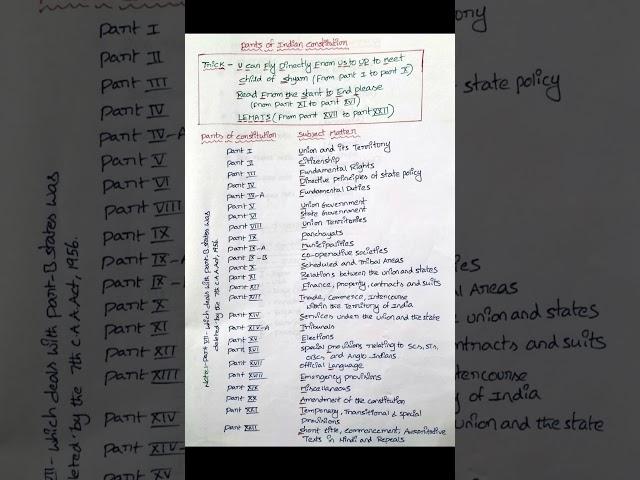 Parts of Indian constitution
Trick - U can Fly Directly From US to UP to meet
child of shyam (From part I to part X)
Read From the start to End please
(From part XI to part XVI)
LEMATS (From part XVII to part XXII)
Parts of constitution Subject Matter
Part I Union and its Territory
Part II Citizenship
Part III Fundamental Rights
Part IV Directive Principles of state policy
Part IV-A Fundamental Duties
Part V Union Government
Part VI State Government
Part VIII Union Territories
Part IX Panchayats
Part IX-A Municipalities
Part IX-B Co-operative societies
Part X Scheduled and Tribal Areas
Part XI Relations between the union and states
Part XII Finance, property, contracts and suits
Part XIII Trade, Commerce, Intercourse
within the Territory of India
Part XIV Services under the union and the state
Part XIV-A Tribunals
Part XV Elections
Part XVI Special provisions relating to SCs, STs,
OBCs and Anglo Indians
official Language
Part XVIII Emergency provisions
Part XIX Miscellaneous
Part XX Amendment of the constitution
Part XXI Temporary, Transitional & special
provisions
Part XXII Short title, commencement, Authoritative
Texts in Hindi and Repeals
Note:- Part VII - which deals with Part-B states was
deleted by the 7th C.A.Act, 1956.